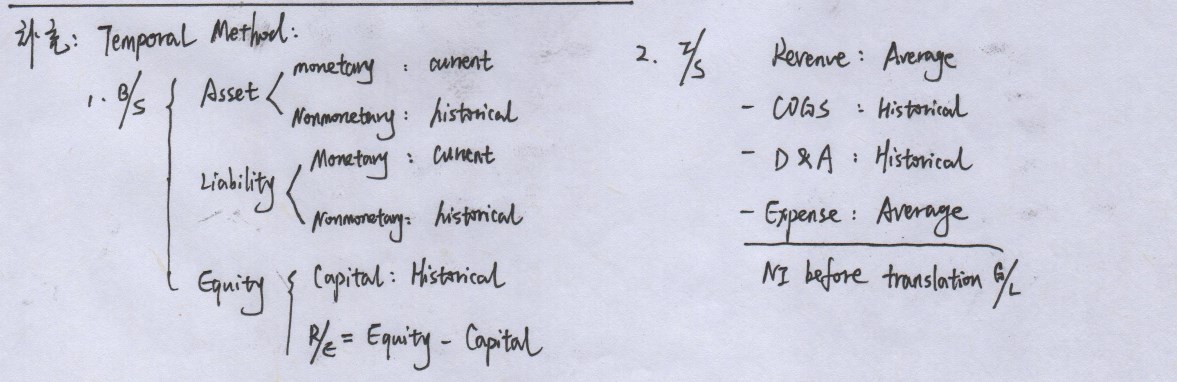 补充: Temporal Method:
1. B/S
Asset
monetary : current
Nonmonetary: historical
Liability
Monetary : current
Nonmonetary: historical
Equity
Capital: Historical
R/E = Equity - Capital
2. I/S
Revenue: Average
- COGS : Historical
- D&A : Historical
- Expense: Average
NI before translation G/L